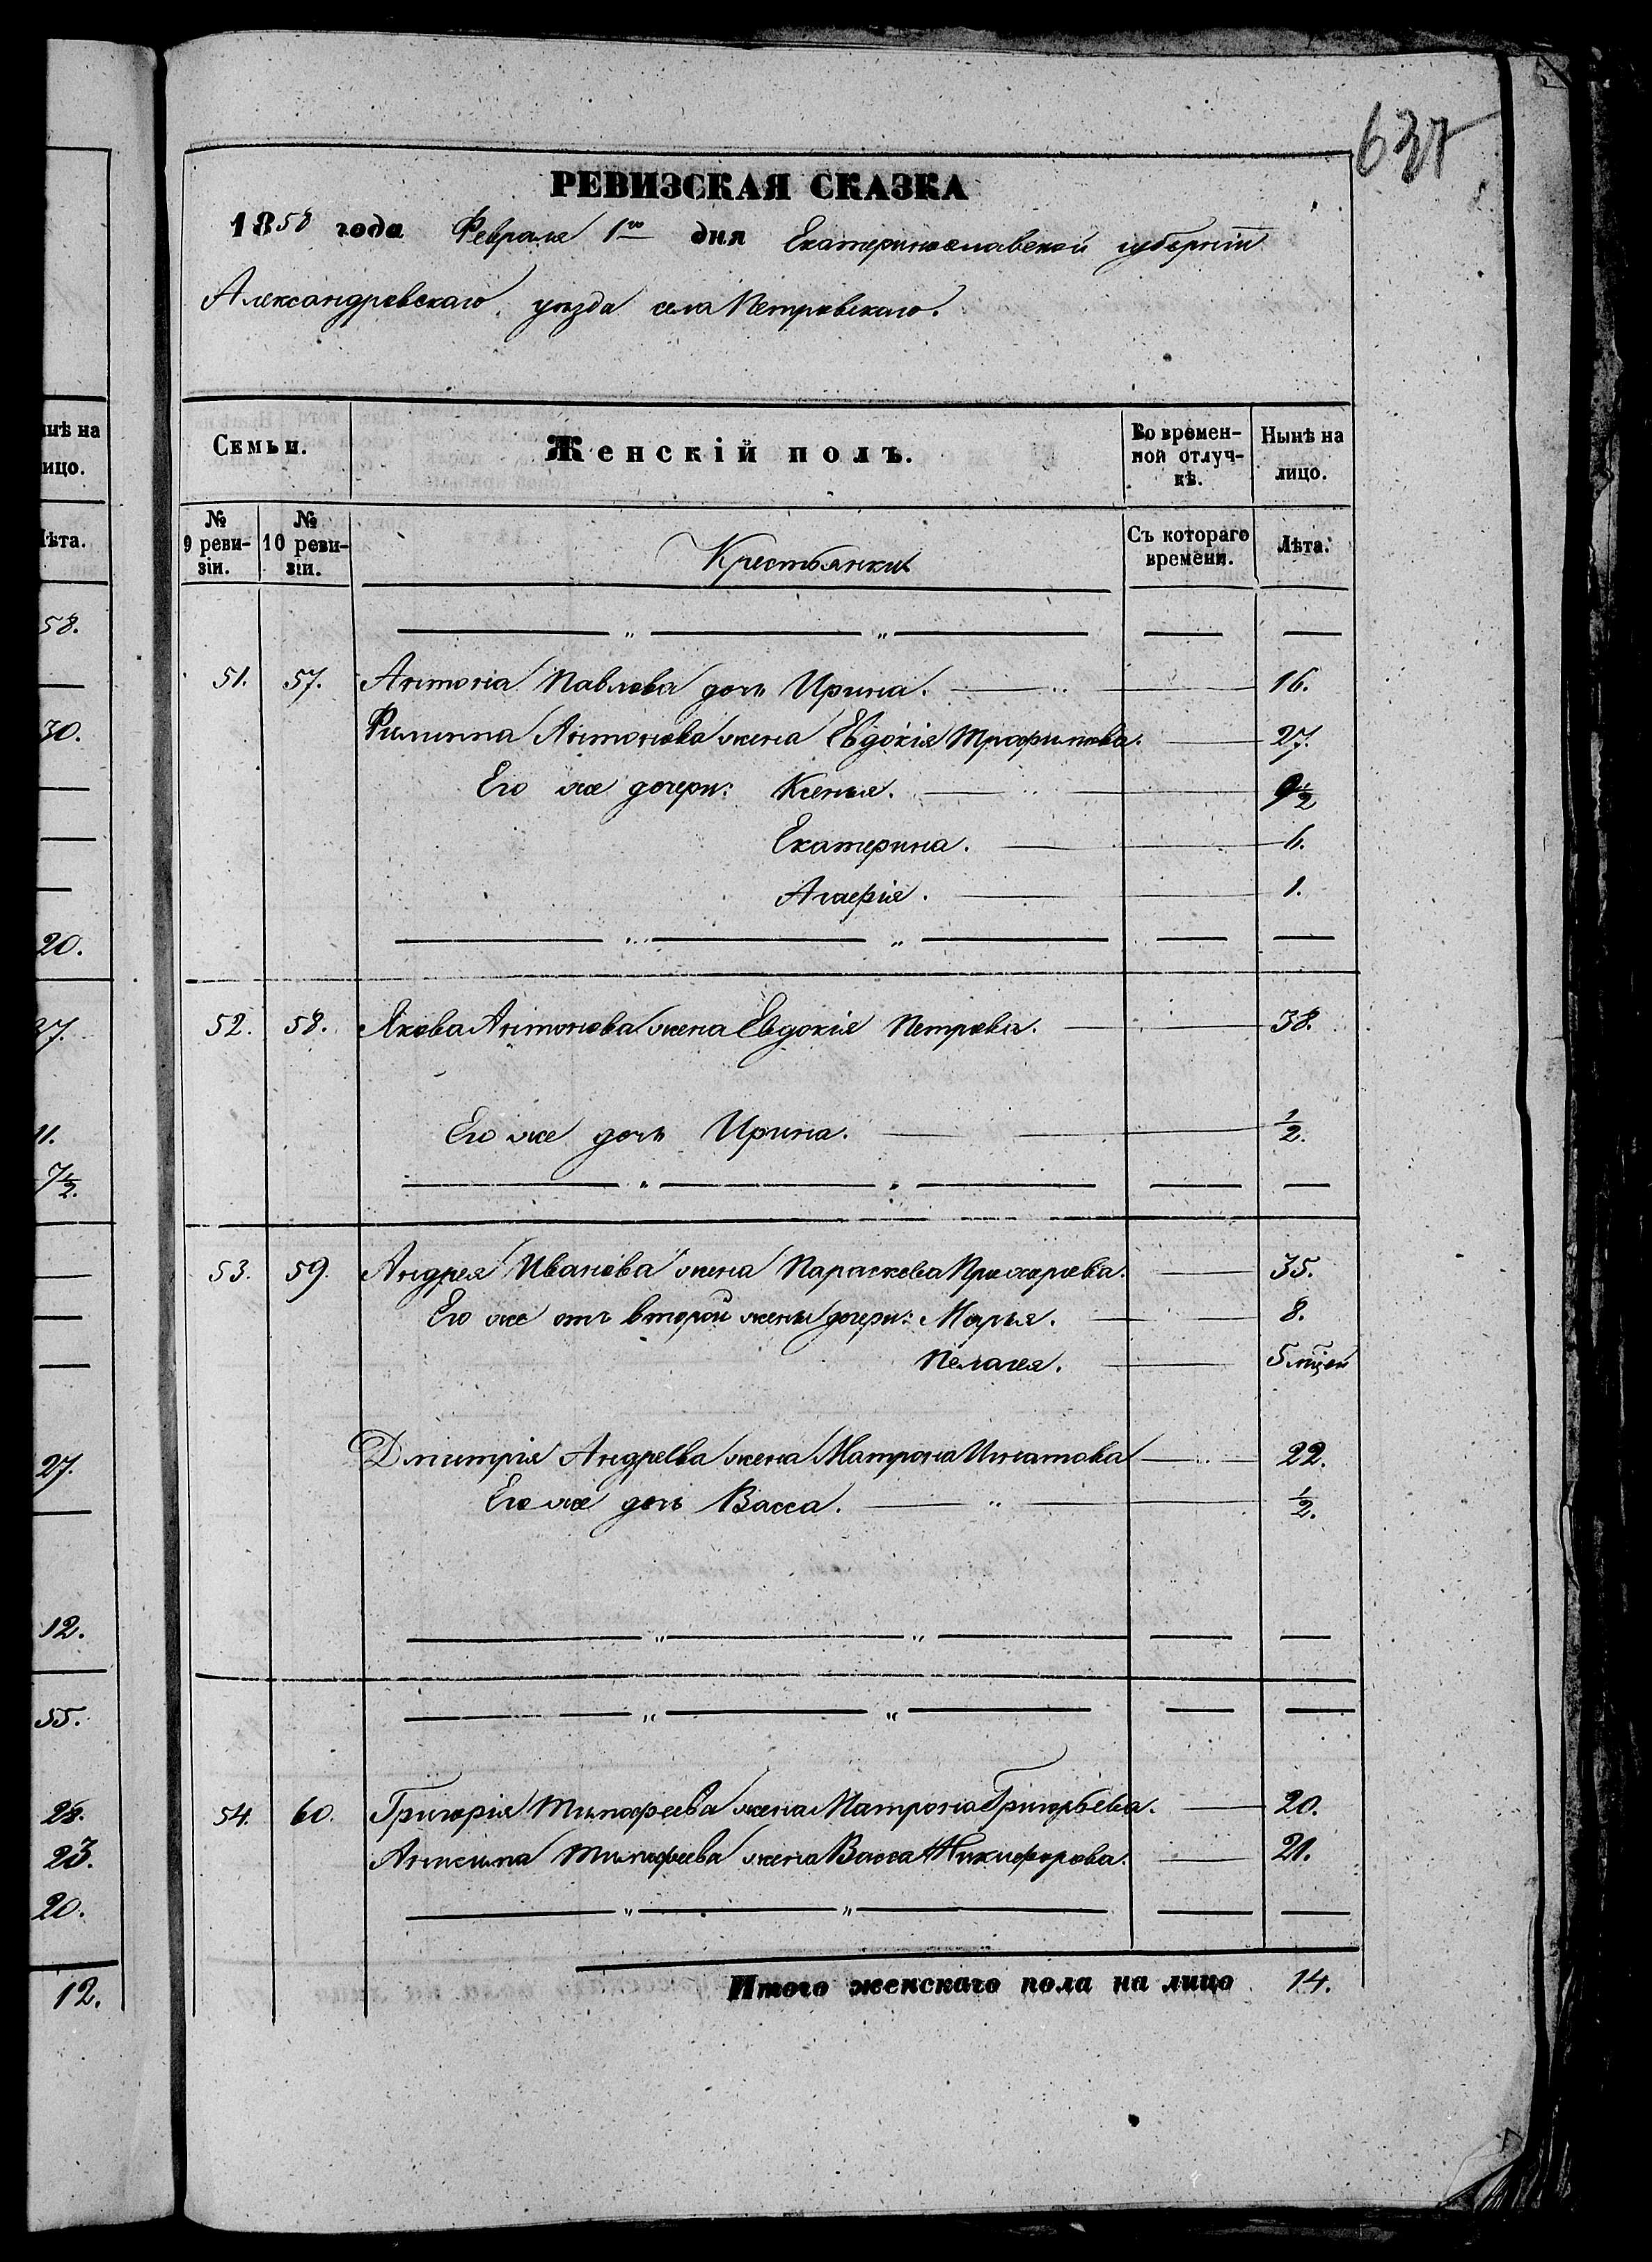 РЕВИЗСКАЯ СКАЗКА
1858 года Февраля 1го дня Екатеринославской губерніи
Александровскаго уѣзда села Петровскаго.
Семьи.
Женскій полъ.
Во времен-
ной отлуч-
кѣ.
Нынѣ на
лицо.
№
9 реви-
зіи.
№
10 реви-
зіи.
Крестьянки
Съ котораго
времени.
Лѣта.
51. 57. Антона Павлова дочь Ирина. 16.
Филиппа Антонова жена Евдокія Трофимова. 27.
Его же дочери: Ксенья. 9½
Екатерина. 6.
Агафія. 1.
52. 58. Якова Антонова жена Евдокія Петрова. 38.
Его же дочь Ирина. ½.
53. 59. Андрея Иванова жена Параскева Прохорова. 35.
Его же отъ второй жены дочери: Марья. 8.
Пелагея. 5 мцей
Дмитрія Андреева жена Матрона Игнатова 22.
Его же дочь Васса. ½.
54. 60. Григорія Тимофеева жена Матрона Григорьева. 20.
Анисима Тимофеева жена Васса Никифорова. 21.
Итого женскаго пола на лицо 14.
нѣ на
ицо.
Лѣта.
58.
30.
20.
37.
11.
7½.
27.
12.
55.
23.
20.
12.